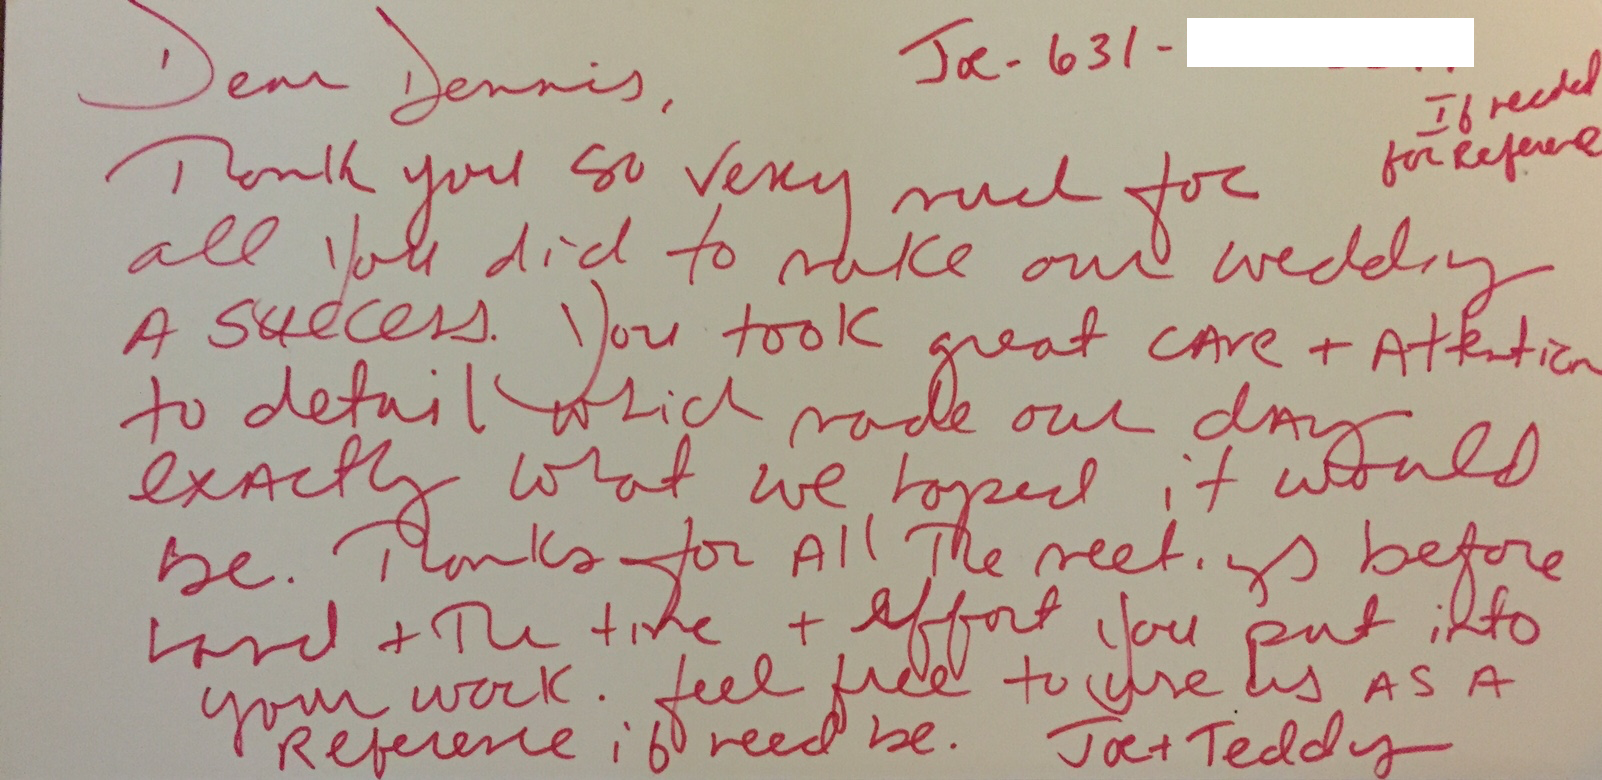 Dear Dennis,
Joe - 631 -
If needed
for Reference
Thank you so very much for
all you did to make our wedding
A success. You took great cAre + Attention
to detail which made our dAy
exActly what we hoped it would
be. Thanks for All The meetings before
hand + The time + effort you put into
your work. feel free to use us AS A
Reference if need be. Joe + Teddy